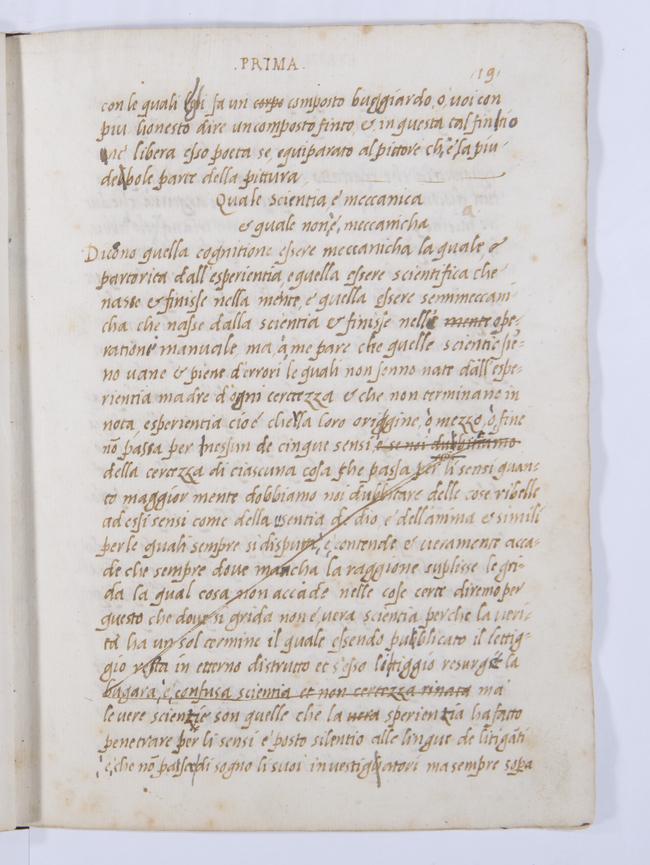 .PRIMA.
19
con le quali egli fa un corpo composto buggiardo, o, uoi con
piu honesto dire un composto finto, & in questa tal fintio
ne libera esso poeta se, equiparato al pittore ch'è la piu
debole parte della pittura
Quale scientia, è meccanica
& quale non è, meccanicha
Dicono quella cognitione essere meccanicha la quale, è
partorita dall'esperientia, e quella essere scientifica che
nasse & finisse nella mente, e quella essere semimeccani
cha che nasse dalla scientia & finisse nella mente ope-
ratione manuale, ma, à me pare che quelle scientie sie-
no uane & piene d'errori le quali non senno nate dall'espe-
rientia madre d'ogni certezza & che non terminano in
nota, esperientia cioè che la loro origgine, ò mezzo, ò fine
nō passa per nessun de cinque sensi e se noi dubbitiamo
della certezza di ciascuna cosa che passa per li sensi quan-
to maggior mente dobbiamo noi dubbitare delle cose ribelle
ad essi sensi come della de dio e dell'anima & simili
per le quali sempre si disputa, e, contende & ueramente acca-
de che sempre doue mancha la raggione suplisse le gri-
da la qual cosa non accade nelle cose certe diremo per
questo che doue si grida non è uera scientia perche la ueri-
tà ha un sol termine il quale essendo pubblicato il lettig-
gio resta in etterno distrutto et s'esso littiggio resurge la
bugara, è, confusa scientia et non certezza rinata ma
le uere scientie son quelle che la uera sperientia ha fatto
penetrare per li sensi e posto silentio alle lingue de litigāti
e, che nō passe di sogno li suoi inuestigatori ma sempre sopra